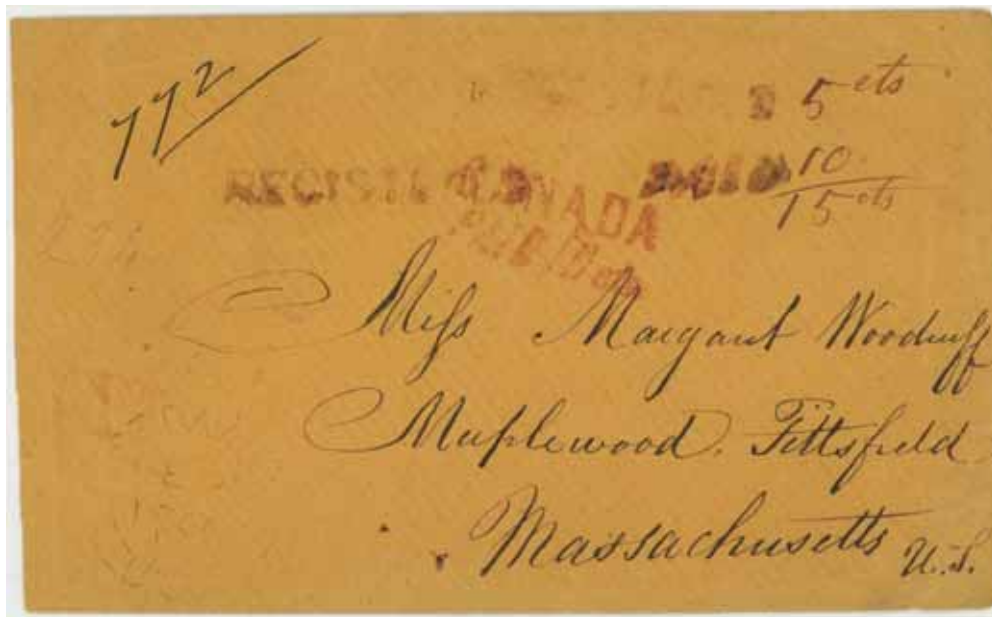 772
5 cts
REGISTERED
10
15 cts
CANADA
PAID 10 cts
Miss Margaret Woodruff
Maplewood. Pittsfield
Massachusetts U.S.